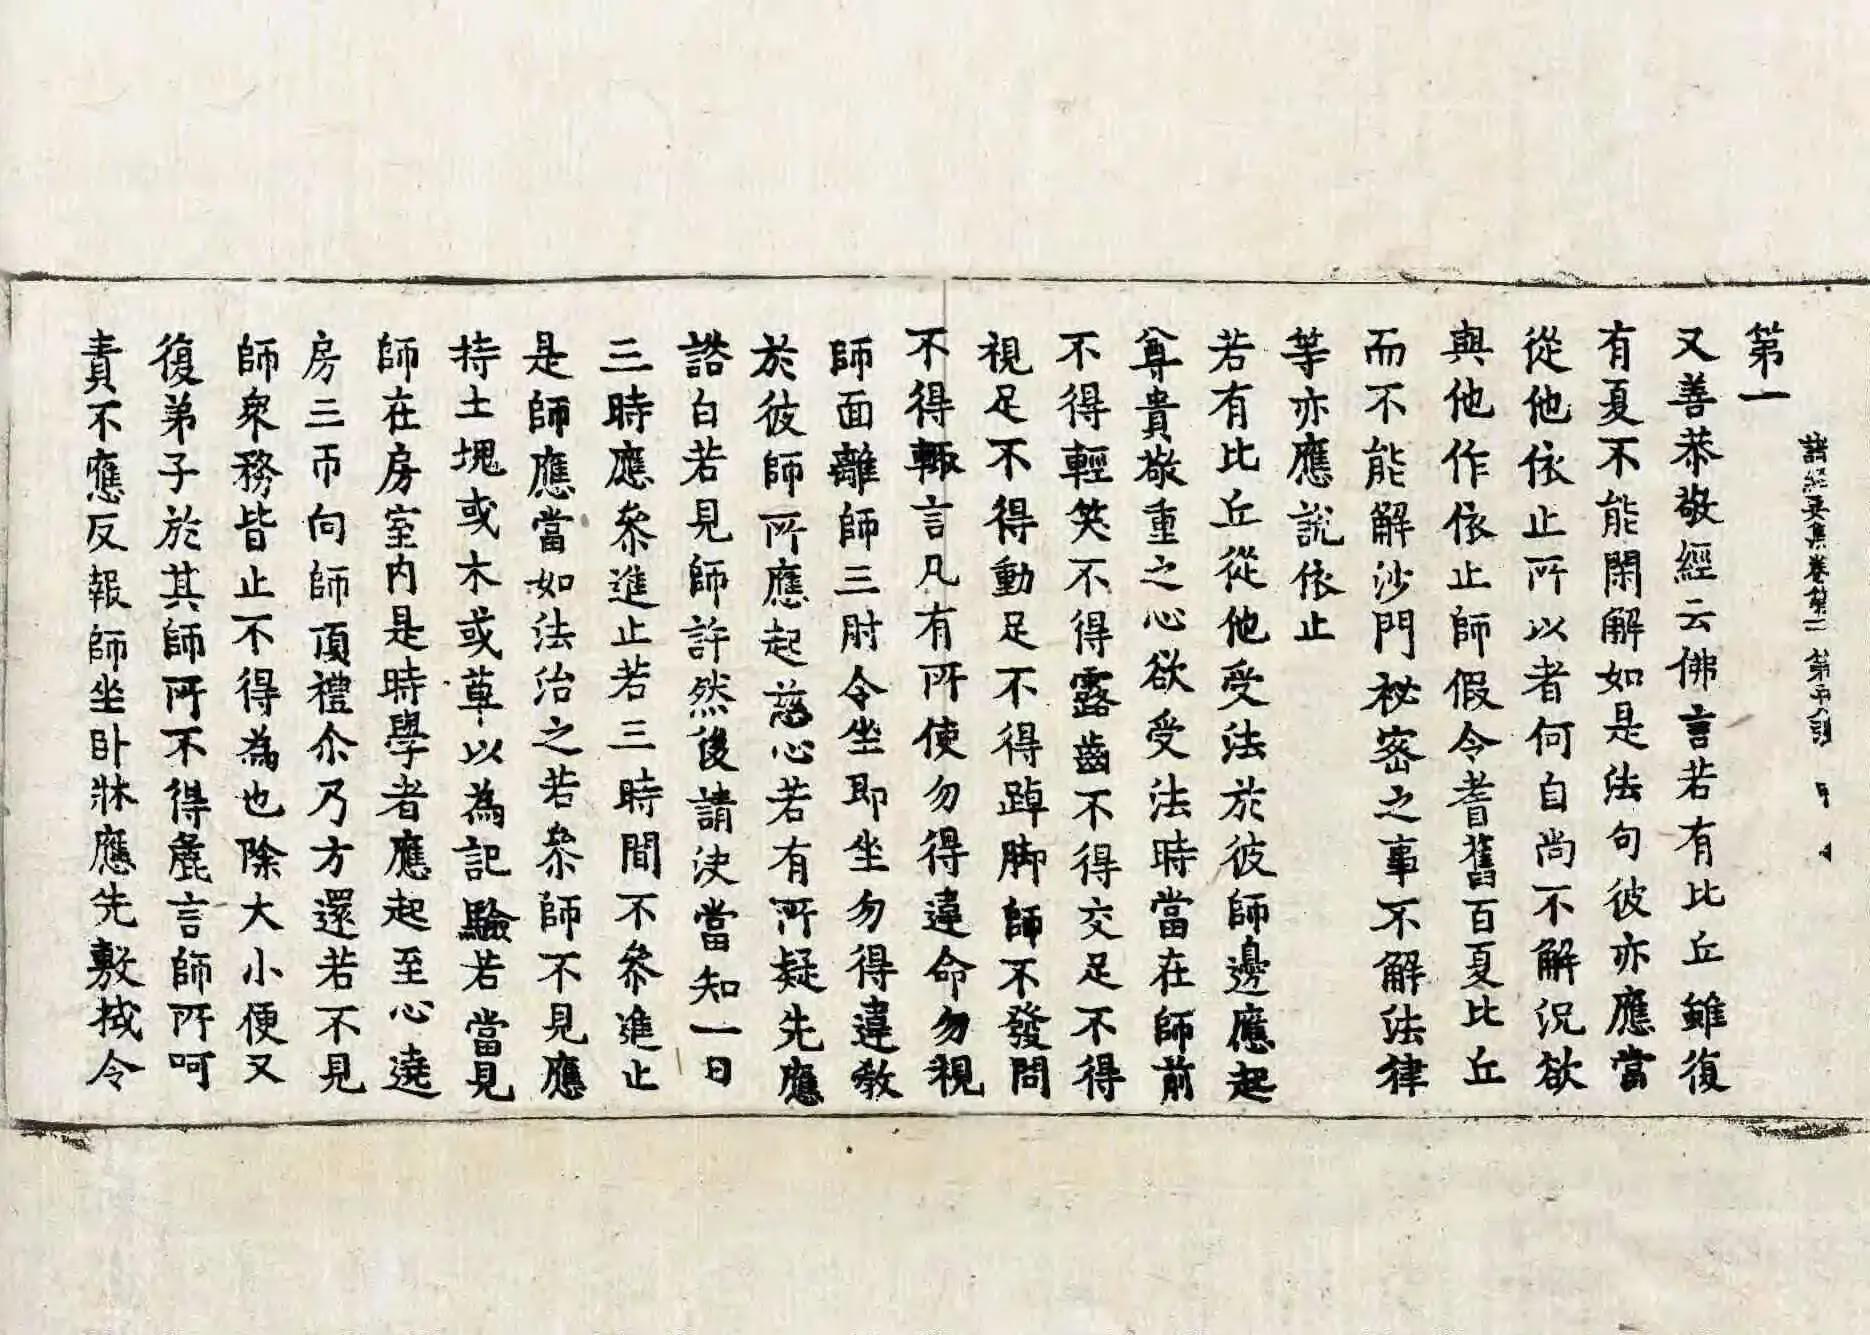 諸經要集卷第二 第
第一
又善恭敬經云佛言若有比丘雖復
有夏不能閑解如是法句彼亦應當
從他依止所以者何自尚不解況欲
與他作依止師假令耆舊百夏比丘
而不能解沙門祕密之事不解法律
等亦應說依止
若有比丘從他受法於彼師邊應起
尊貴敬重之心欲受法時當在師前
不得輕笑不得露齒不得交足不得
視足不得動足不得踔脚師不發問
不得輙言凡有所使勿得違命勿視
師面離師三肘令坐即坐勿得違教
於彼師所應起慈心若有所疑先應
諮白若見師許然後請決當知一日
三時應叅進止若三時間不叅進止
是師應當如法治之若叅師不見應
持土塊或木或草以為記驗若當見
師在房室内是時學者應起至心遶
房三帀向師頂禮尒乃方還若不見
師衆務皆止不得為也除大小便又
復弟子於其師所不得麁言師所呵
責不應反報師坐卧牀應先敷拭令